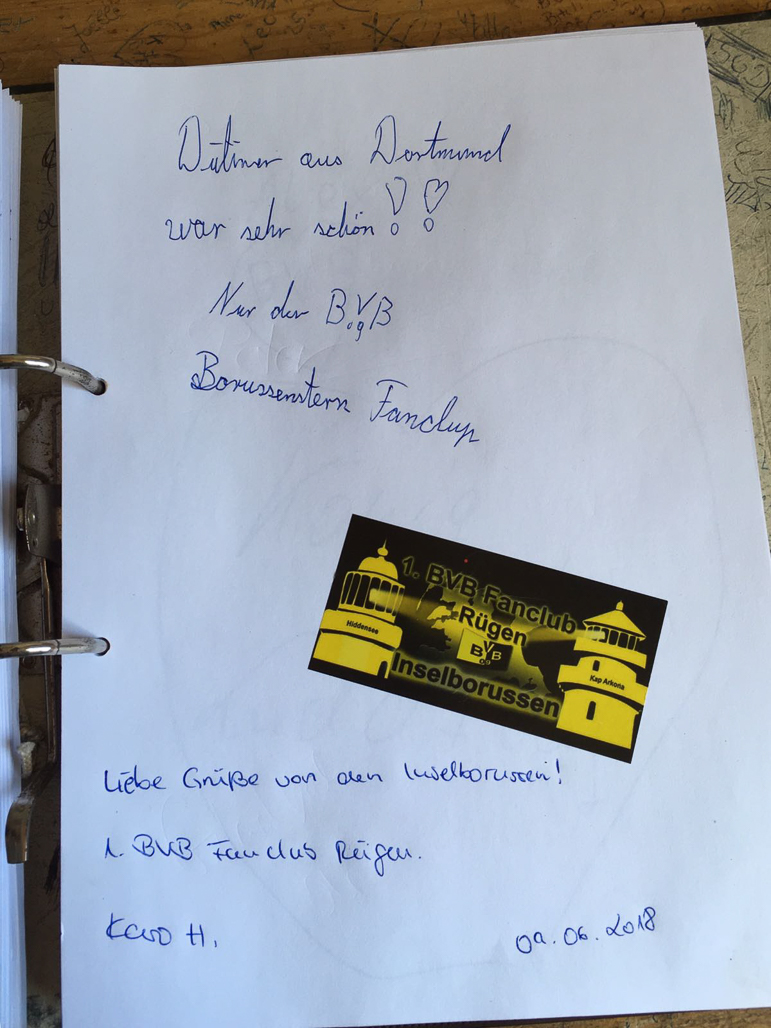 Dütmer aus Dortmund
war sehr schön !!
Nur der BVB
09
Borussenstern Fanclup
1. BVB Fanclub
Rügen
BVB
09
Inselborussen
Hiddensee
Kap Arkona
Liebe Grüße von den Inselborussen!
1. BVB Fanclub Rügen.
Karo H.
09.06.2018